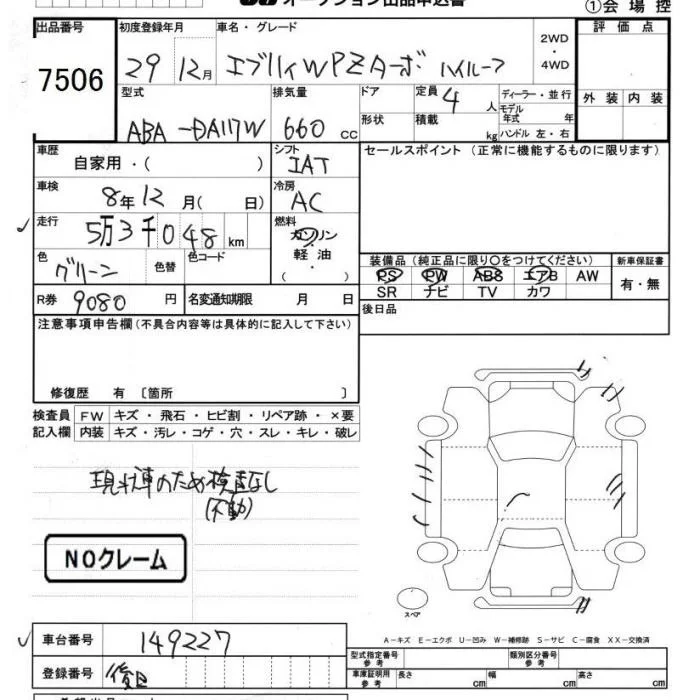 オークション出品申込書
①会場控
出品番号 7506
初度登録年月 29 12月
車名・グレード エブリイWPZターボ ハイルーフ
2WD・4WD
評価点
外装 内装
型式 ABA-DA17W
排気量 660 cc
ドア
形状
定員 4人
積載 kg
ディーラー・並行
モデル年式 年
ハンドル 左・右
車歴 自家用・( )
シフト IAT
セールスポイント(正常に機能するものに限ります)
車検 8年12月(日)
冷房 AC
走行 5万3千048km
燃料 ガソリン 軽油・( )
色 グリーン 色替
色コード
装備品(純正品に限り○をつけてください)
PS PW ABS エアB AW
SR ナビ TV カワ
新車保証書 有・無
R券 9080円
名変通知期限 月 日
後日品
注意事項申告欄(不具合内容等は具体的に記入して下さい)
修復歴 有〔箇所 〕
検査員記入欄
FW キズ・飛石・ヒビ割・リペア跡・×要
内装 キズ・汚レ・コゲ・穴・スレ・キレ・破レ
現状車のため検査なし
(不動)
NOクレーム
スペア
A-キズ E-エクボ U-凹み W-補修跡 S-サビ C-腐食 XX-交換済
車台番号 149227
型式指定番号 参考
類別区分番号 参考
登録番号 後日
車庫証明用 参考 長さ cm 幅 cm 高さ cm